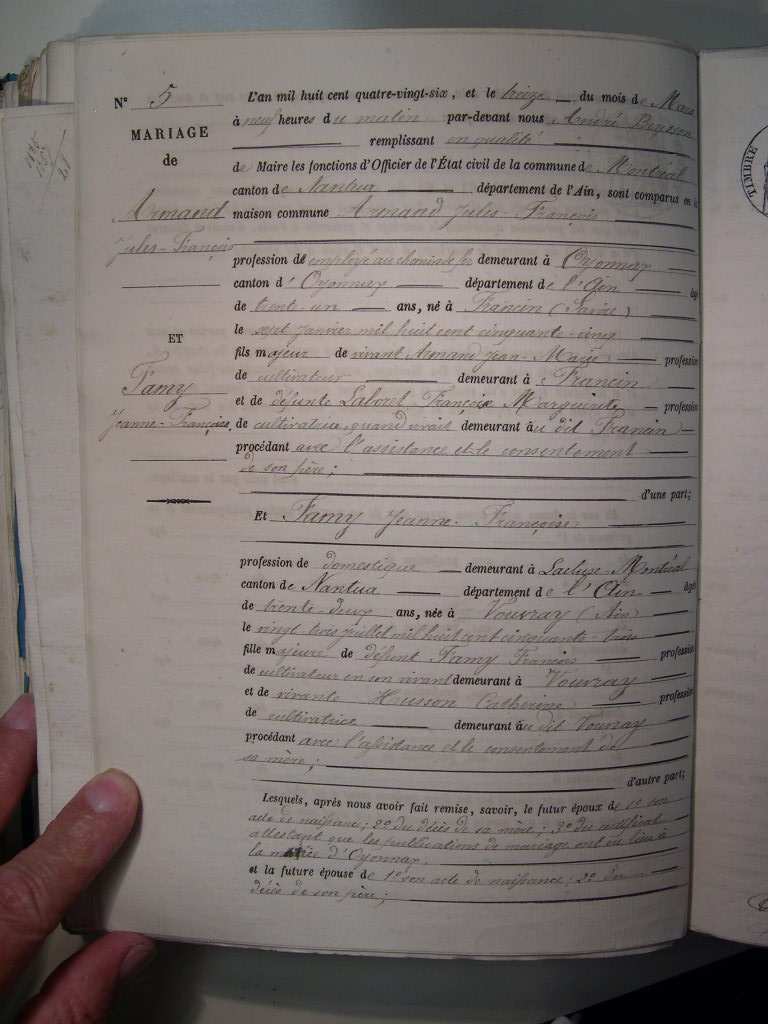 N° 5
MARIAGE
de
Armand
Jules-François
ET
Famy
Jeanne-Françoise,
L'an mil huit cent quatre-vingt-six, et le treize du mois de Mars
à neuf heures du matin par-devant nous André
remplissant en qualité
de Maire les fonctions d'Officier de l'État civil de la commune de Montréal
canton de Nantua département de l'Ain, sont comparus en la
maison commune Armand Jules-François
profession de employé au chemin de fer demeurant à Oyonnax
canton d'Oyonnax département de l'Ain âgé
de trente-un ans, né à Francin (Savoie)
le sept janvier mil huit cent cinquante-cinq
fils majeur de vivant Armand Jean-Marie profession
de cultivateur demeurant à Francin
et de défunte Laboret Françoise Marguerite profession
de cultivateur quand vivait demeurant au dit Francin
procédant avec l'assistance et le consentement
de son père;
d'une part;
Et Famy Jeanne-Françoise
profession de domestique demeurant à Lacluse-Montréal
canton de Nantua département de l'Ain âgée
de trente-deux ans, née à Vouvray (Ain)
le vingt trois juillet mil huit cent cinquante-trois
fille majeure de défunt Famy François profession
de cultivateur en son vivant demeurant à Vouvray
et de vivante Husson Catherine profession
de cultivatrice demeurant au dit Vouvray
procédant avec l'assistance et le consentement de
sa mère;
d'autre part;
Lesquels, après nous avoir fait remise, savoir, le futur époux de 1° son
acte de naissance; 2° du décès de sa mère; 3° du certificat
attestant que les publications de mariage ont eu lieu à
la mairie d'Oyonnax.
et la future épouse de 1° son acte de naissance; 2° du
décès de son père;
TIMBRE